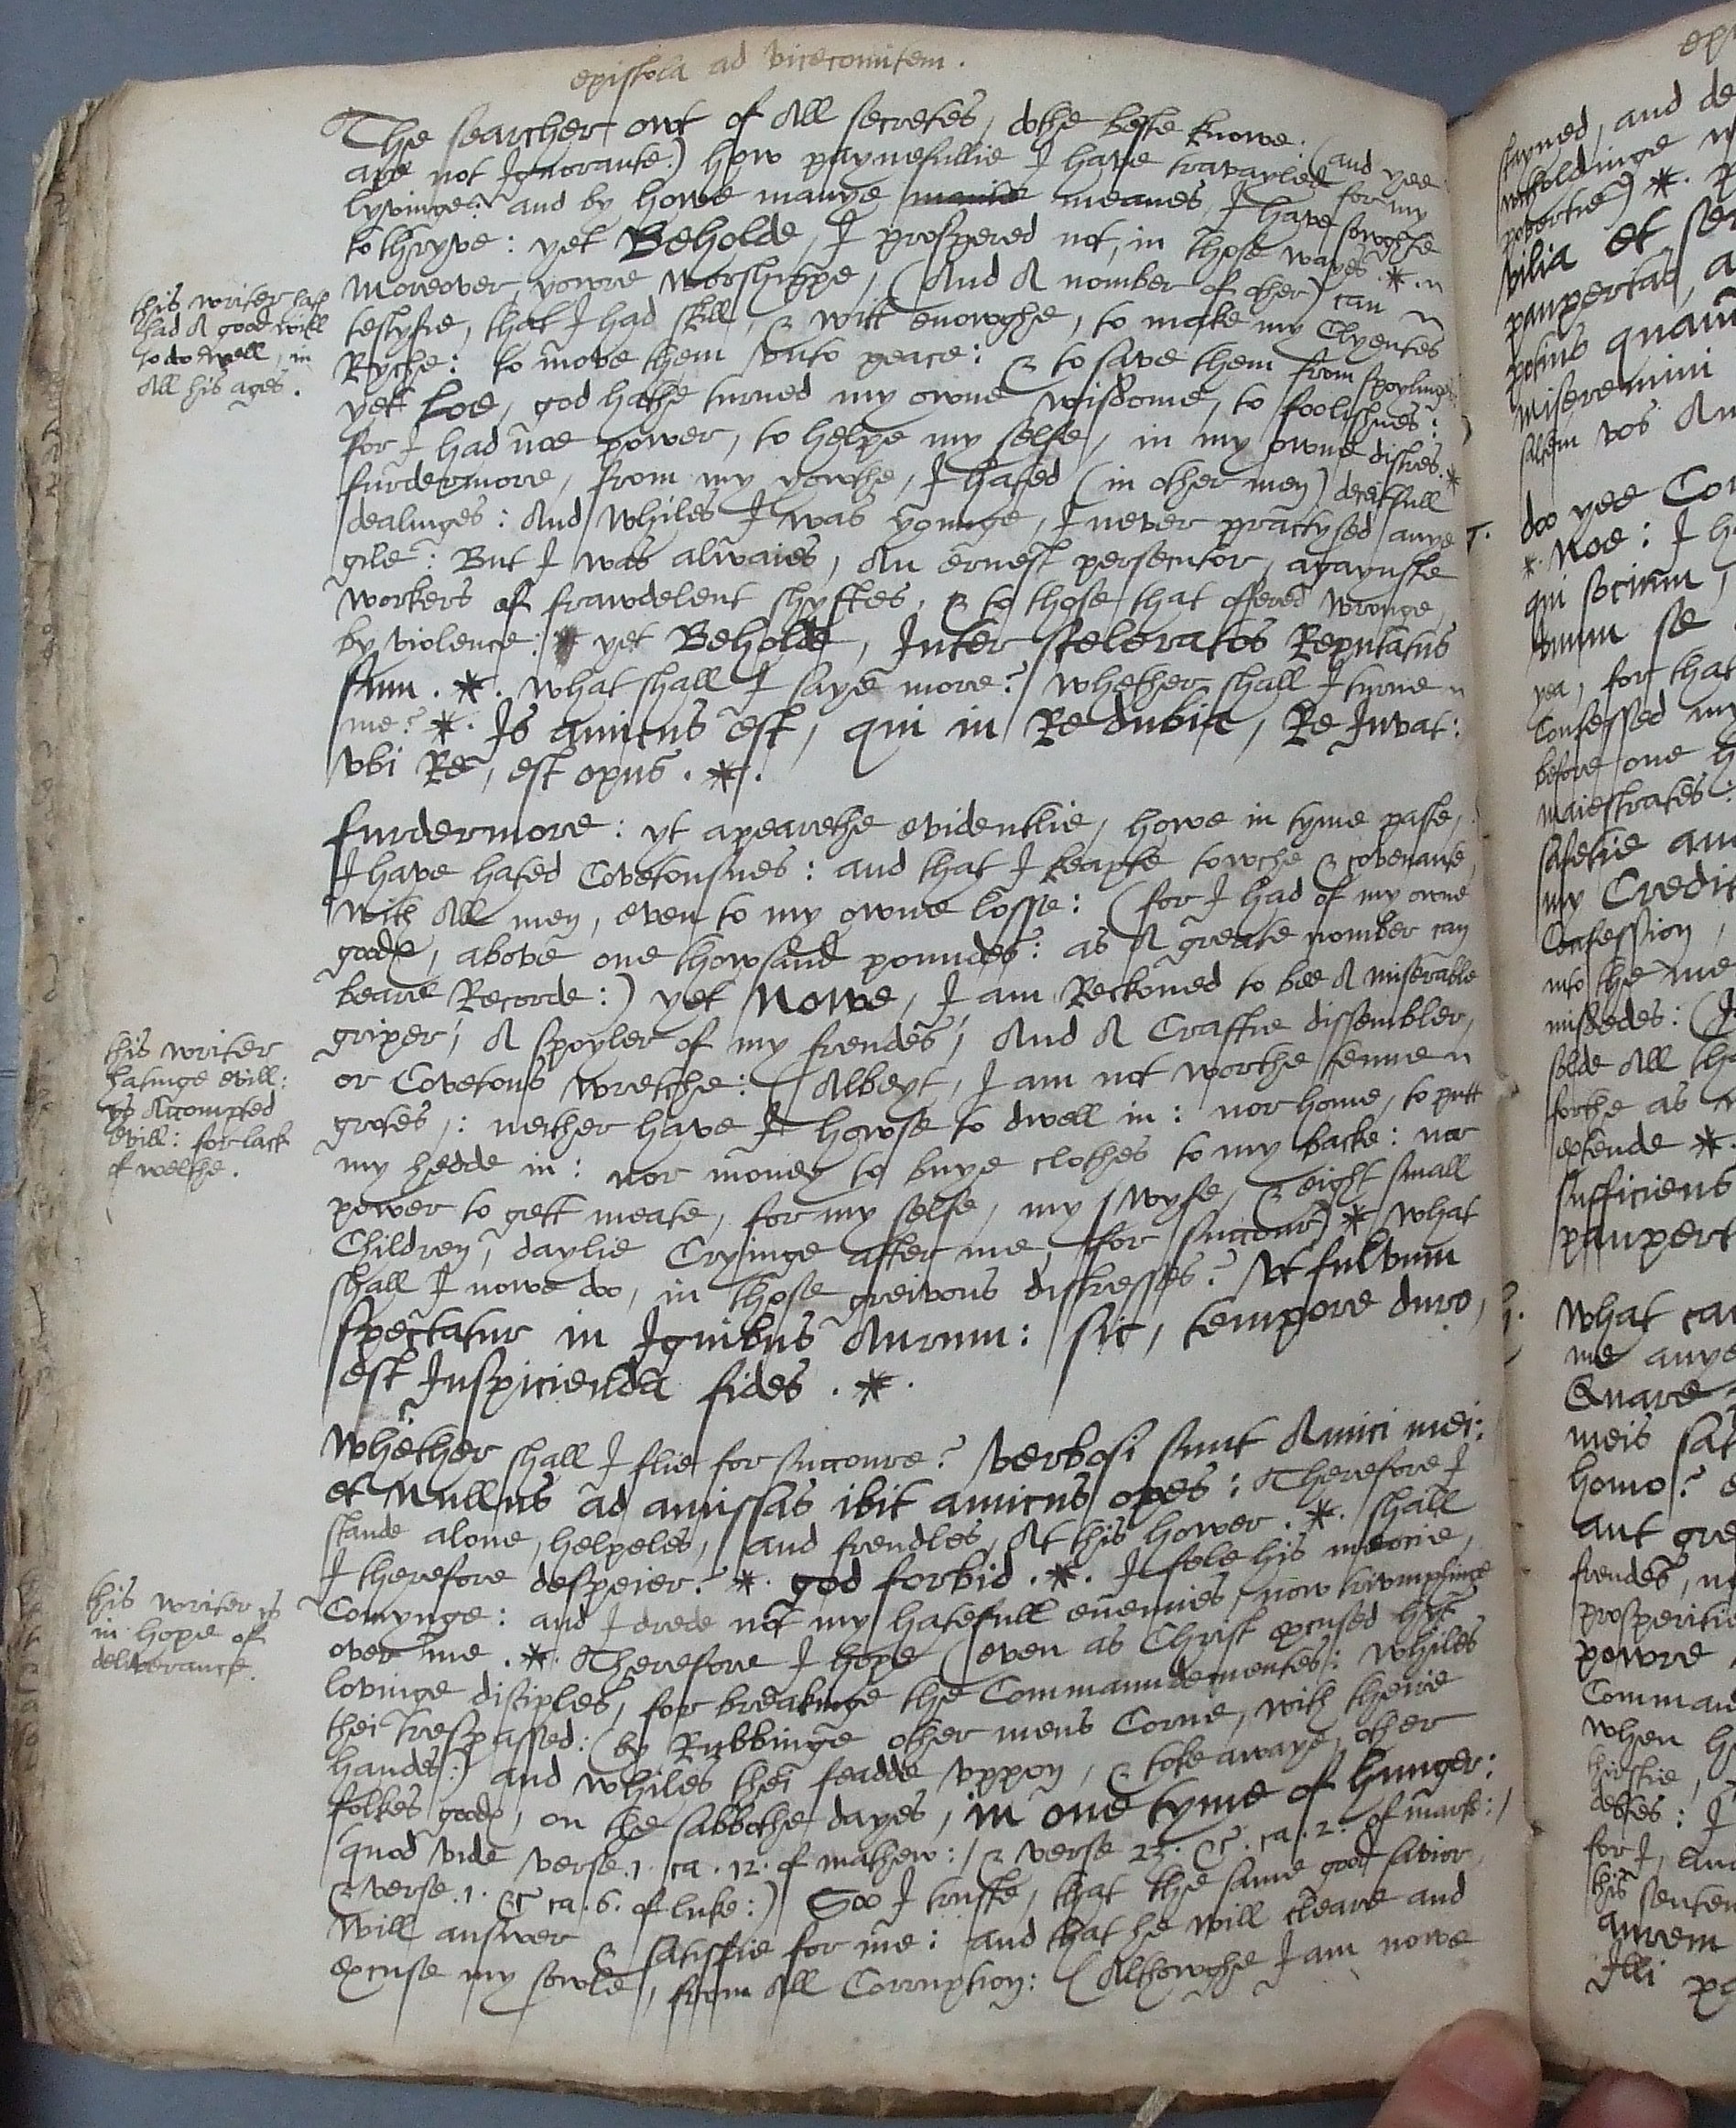 epistola ad vicecomitem.
The searcher owt of All secretes, dothe beste knowe: (and yee
are not Ignorante:) how paynefullie I have travayled for my
lyvinge: and by howe manye meanes, I have sowghte
to thryve: yet Beholde, I prospered not, in those wayes. *.
Moreover yowre worshippe, (And A nomber of other) can
testyfie, that I had skill, & witt enowghe, to make my Clyentes
Ryche: to move them unto peace: & to save them from spoylinge:
yet Loe, god hathe turned my owne wisdome, to foolishnes:
for I had noe power, to helpe my selfe, in my owne distres. *
furdermore, from my yowthe, I hated (in other men) deceitfull
dealinges: And whiles I was younge, I never practysed anye
gile: But I was alwaies, An ernest persecutor, agaynste
workers of frawdelent shyftes, & to those that offered wronge,
by violence: * yet Beholde, Inter sceleratos Reputatus
sum. *. What shall I saye more? Whether shall I turne
me? *. Is amicus est, qui in Re dubia, Re Iuvat:
vbi Re, est opus. *.
furdermore: yt apearethe evidentlie, howe in tyme paste,
I have hated Covetousnes: and that I keapte towche & covenante,
with All men, even to my owne losse: (for I had of my owne
goodes, above one thowsand poundes: as A greate nomber can
beare Recorde:) yet Nowe, I am Reckoned to bee A miserable
griper, A spoyler of my frendes, And A Craftie dissembler,
or Covetous wretche: (Albeyt, I am not worthe tenne
grotes,: nether have I howse to dwell in: nor home, to putt
my hedde in: nor money to buye clothes to my backe: nor
power to gett meate, for my selfe, my wyfe, & eight small
Children, daylie Cryinge after me, for succour) * What
shall I nowe do, in those greivous distresses? Ut fulvum
spectatur in Ignibus Aurum: sic, tempore duro,
est Inspicienda fides. *.
Whether shall I flie for succoure? Verbosi sunt Amici mei:
et Nullus ad amissas ibit amicus opes: Therefore I
stande alone, helpeles, and frendles, At this hower. *. shall
I therefore despeier? *. god forbid. *. I fele his mercie,
Comynge: and I drede not my hatefull enemies, now triumphinge
over me. *. Therefore I hope (even as Christ excused hys
lovinge disiples, for breakinge the Commaundementes: whiles
thei trespassed: (by Rubbinge other mens Corne, with theire
handes:) and whiles thei feadde uppon, & toke awaye, other
folkes goodes, on the sabbothe dayes, in one tyme of hunger:
quod vide verse. 1. ca. 12. of mathew:/ & verse 23. &c. ca. 2. of marke:/
& verse. 1. &c ca. 6. of luke:) Soo I truste, that the same good savior,
will answer & satisffie for me: and that he will cleare and
excuse my sowle, from All Corruption: (Althowghe I am nowe
this writer hath
had A good will
to do well, in
All his ages.
this writer
hatinge evill:
ys Accompted
evill: for lack
of welthe.
this writer ys
in hope of
deliverance.
stayned, and
withholdinge
povertie) *.
vilia et
paupertas,
potius quam
Miseremini
saltem vos
do yee
*. Noe: I
qui socium,
unum se
yea, for that
Confessed my
before one
maiestrates:
safetie and
my Credit
Confession,
into the
misdedes:
solde All
forthe as
extende *.
sufficiens
What
me anye
Quare
meis
homo?
aut
frendes,
prosperitie
powre
when
dettes: I
for I, and
this
aurem
Illi